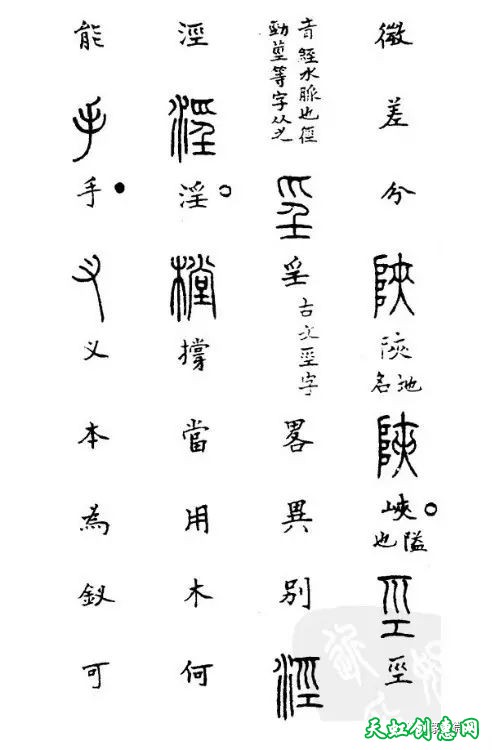 微差分陝陝地名陜峽隘也巠巠
音經水脈也徑
勁莖等字从之
㸒古文巠字畧異別涇
涇淫淫樘撐當用木何
能手手叉叉本為釵可
天虹创意网